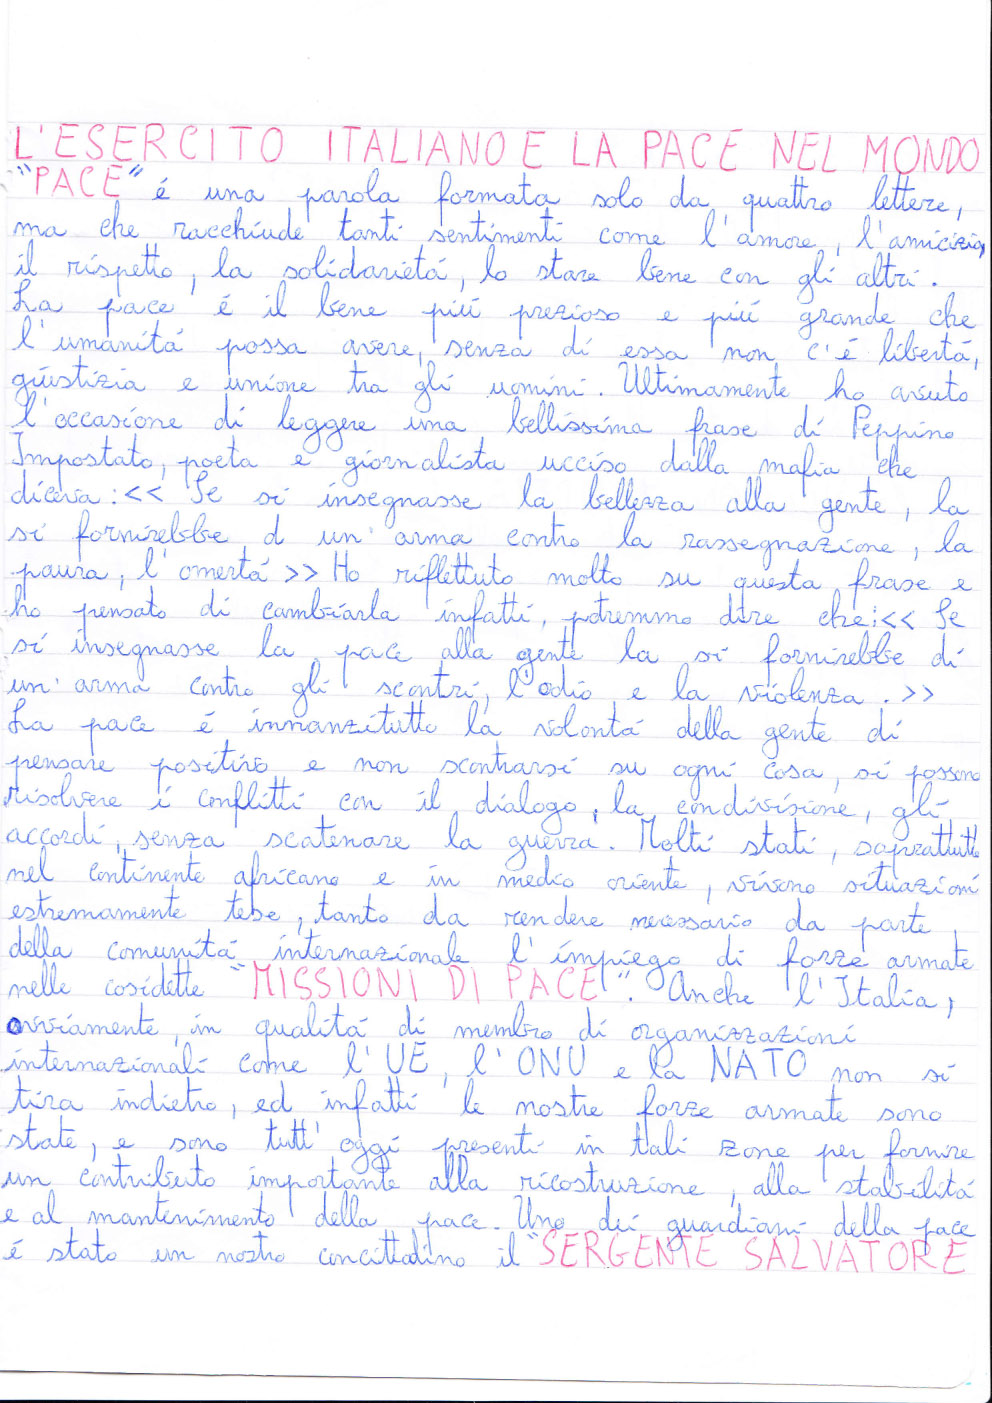 L'ESERCITO ITALIANO E LA PACE NEL MONDO
"PACE" é una parola formata solo da quattro lettere,
ma che racchiude tanti sentimenti come l'amore, l'amicizia,
il rispetto, la solidarietá, lo stare bene con gli altri.
La pace é il bene piú prezioso e piú grande che
l'umanitá possa avere, senza di essa non c'é libertá,
giustizia e unione tra gli uomini. Ultimamente ho avuto
l'occasione di leggere una bellissima frase di Peppino
Impostato, poeta e giornalista ucciso dalla mafia che
diceva: << Se si insegnasse la bellezza alla gente, la
si fornirebbe d un'arma contro la rassegnazione, la
paura, l'omertá >> Ho riflettuto molto su questa frase e
ho pensato di cambiarla infatti, potremmo dire che: << Se
si insegnasse la pace alla gente la si fornirebbe di
un'arma contro gli scontri, l'odio e la violenza. >>
La pace é innanzitutto la volontá della gente di
pensare positivo e non scontrarsi su ogni cosa, si possono
risolvere i conflitti con il dialogo, la condivisione, gli
accordi, senza scatenare la guerra. Molti stati, soprattutto
nel continente africano e in medio oriente, vivono situazioni
estremamente tese, tanto da rendere necessario da parte
della comunitá internazionale l'impiego di forze armate
nelle cosidette "MISSIONI DI PACE". Anche l'Italia,
ovviamente, in qualitá di membro di organizzazioni
internazionali come l'UE, l'ONU e la NATO non si
tira indietro, ed infatti le nostre forze armate sono
state, e sono tutt'oggi presenti in tali zone per fornire
un contributo importante alla ricostruzione, alla stabilitá
e al mantenimento della pace. Uno dei guardiani della pace
é stato un nostro concittadino il "SERGENTE SALVATORE